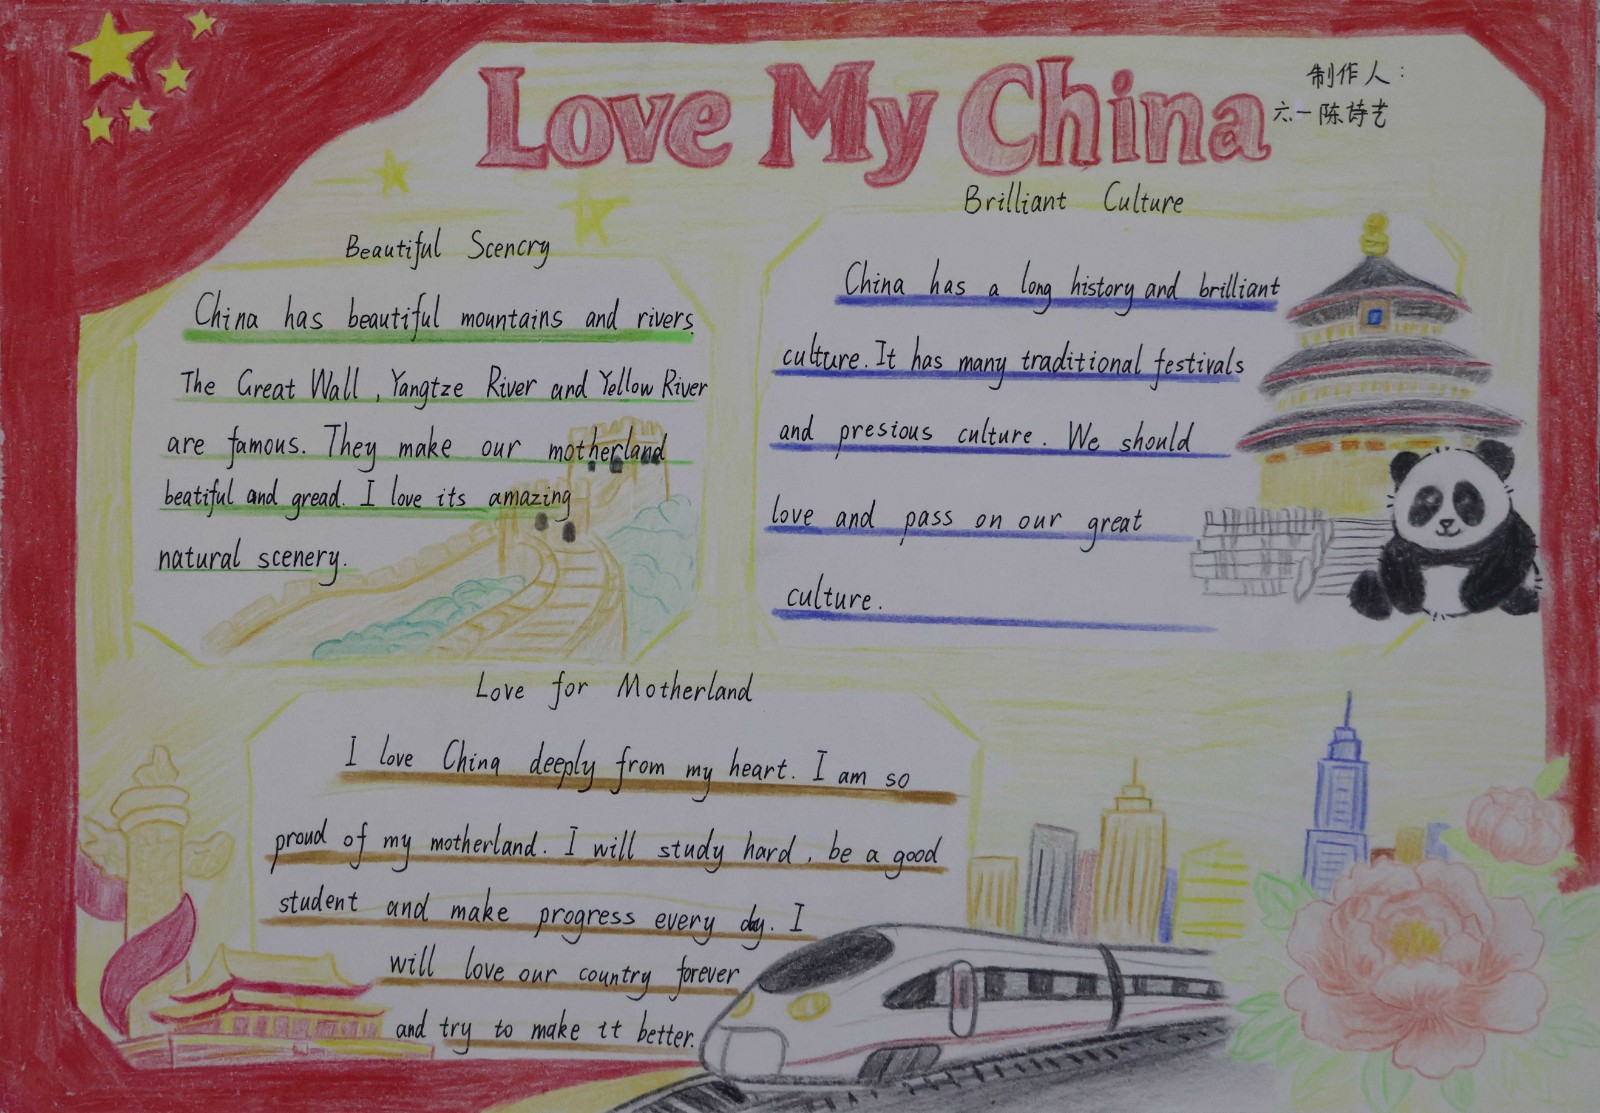 Love My China
制作人:
六一陈诗艺
Beautiful Scencry
China has beautiful mountains and rivers.
The Great Wall , Yangtze River and Yellow River
are famous. They make our motherland
beatiful and gread. I love its amazing
natural scenery.
Brilliant Culture
China has a long history and brilliant
culture. It has many traditional festivals
and presious culture. We should
love and pass on our great
culture.
Love for Motherland
I love China deeply from my heart. I am so
proud of my motherland. I will study hard, be a good
student and make progress every day. I
will love our country forever
and try to make it better.